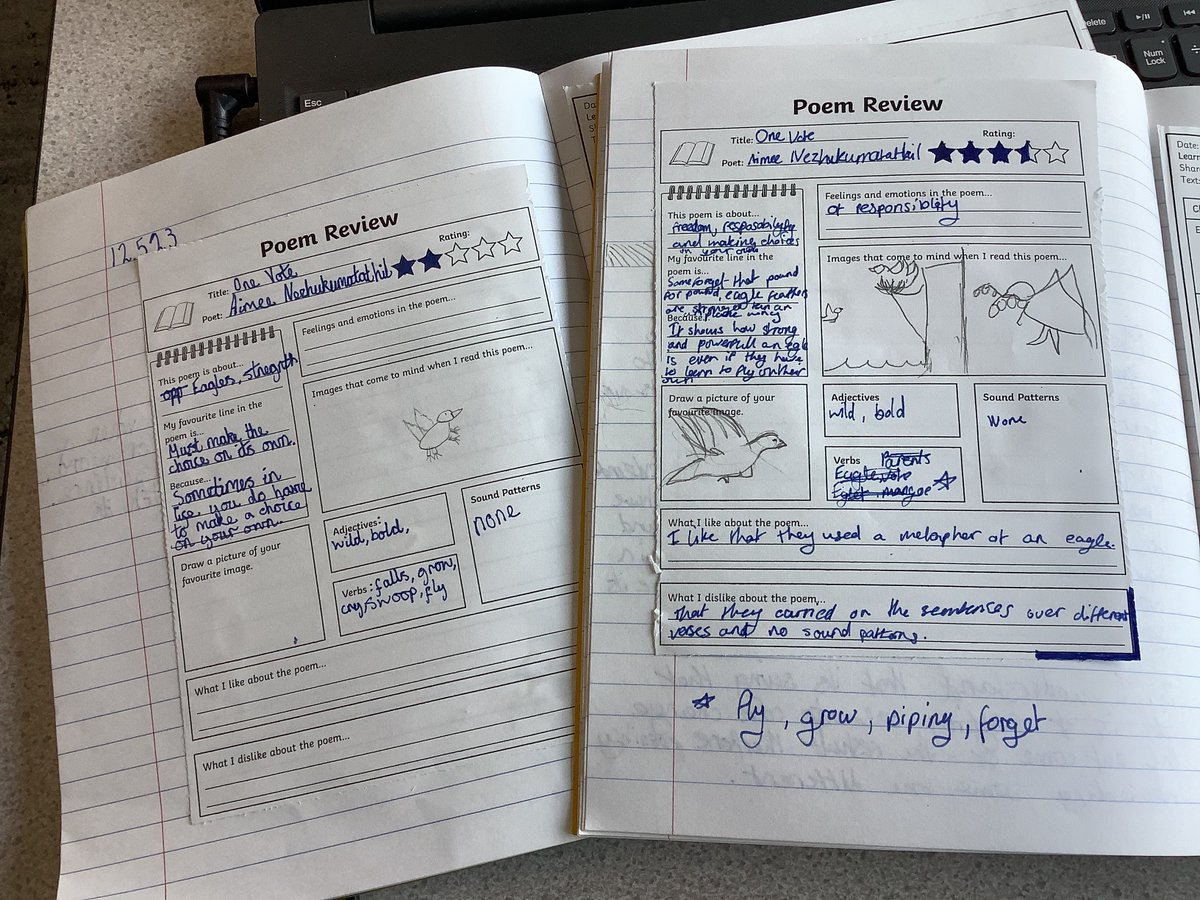 Esc
Delete
Num
Lock
12.5.23
Poem Review
Title: One Vote
Rating:
Poet: Aimee Nezhukumatathil
This poem is about...
Eagles, strength
My favourite line in the
poem is...
Must make the
choice on its own.
Because...
Sometimes in
life, you do have
to make a choice
on your own.
Draw a picture of your
favourite image.
Feelings and emotions in the poem...
Images that come to mind when I read this poem...
Adjectives:
wild, bold,
Verbs: falls, grow,
cry, swoop, fly
Sound Patterns
none
What I like about the poem...
What I dislike about the poem...
Poem Review
Title: One Vote
Rating:
Poet: Aimee Nezhukumatathil
This poem is about...
freedom,
and making choices
My favourite line in the
poem is...
Some forget that pound
for pound, eagle feathers
are
Because...
It shows how strong
and powerfull an
is even if they have
to learn to fly on their
own
Draw a picture of your
favourite image.
Feelings and emotions in the poem...
of
Images that come to mind when I read this poem...
Adjectives
wild, bold
Verbs Parents
Sound Patterns
None
What I like about the poem...
I like that they used a of an eagle.
What I dislike about the poem...
That they carried on the sentences over different
verses and no sound
fly, grow, piping, forget
Date:
Text: